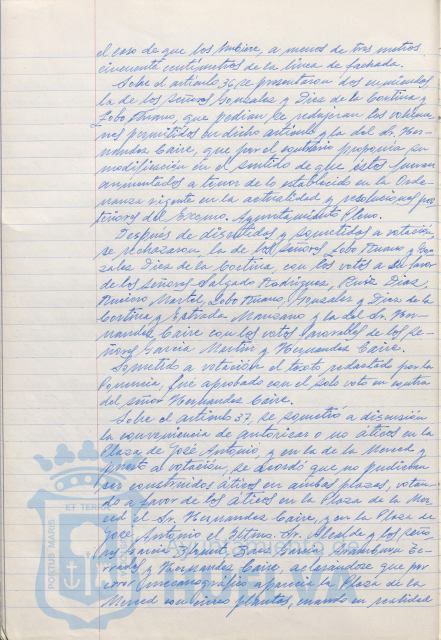 el caso de que los hubiere, a menos de tres metros
cincuenta centímetros de la línea de fachada.
Sobre el artículo 36 se presentaron dos enmiendas
la de los señores Gonzalez y Diez de la Cortina y
Lobo Ruano, que pedían se redujeran los volúme-
nes permitidos en dicho artículo y la del Sr. Her-
nandez Caire, que por el contrario proponía su
modificación en el sentido de que éstos fueran
aumentados a tenor de lo establecido en la Orde-
nanza vigente en la actualidad y resoluciones pos-
teriores del Excmo. Ayuntamiento Pleno.
Después de discutidos y sometidos a votación,
se rechazaron, la de los señores Lobo Ruano y Gon-
zalez Diez de la Cortina, con los votos a su favor
de los señores Salgado Rodriguez, Ruiz Diaz,
Romero Martel, Lobo Ruano, Gonzalez y Diez de la
Cortina y Estrada Manzano y la del Sr. Her-
nandez Caire con los votos favorables de los se-
ñores Garcia Martin y Hernandez Caire.
Sometido a votación el texto redactado por la
Ponencia, fué aprobado con el solo voto en contra
del señor Hernandez Caire.
Sobre el artículo 37, se sometió a discusión
la conveniencia de autorizar o no áticos en la
Plaza de José Antonio, y en la de la Merced y
puesto a votación, se acordó que no pudieran
ser construidos áticos en ambas plazas, votan-
do a favor de los áticos en la Plaza de la Mer-
ced el Sr. Hernandez Caire, y en la Plaza de
José Antonio el Iltmo. Sr. Alcalde y los seño-
res Garcia
y Hernandez Caire, aclarándose que por
error mecanográfico aparecía la Plaza de la
Merced con cinco plantas, cuando en realidad
PORTUS MARIS
ET TERRAE
HUELVA